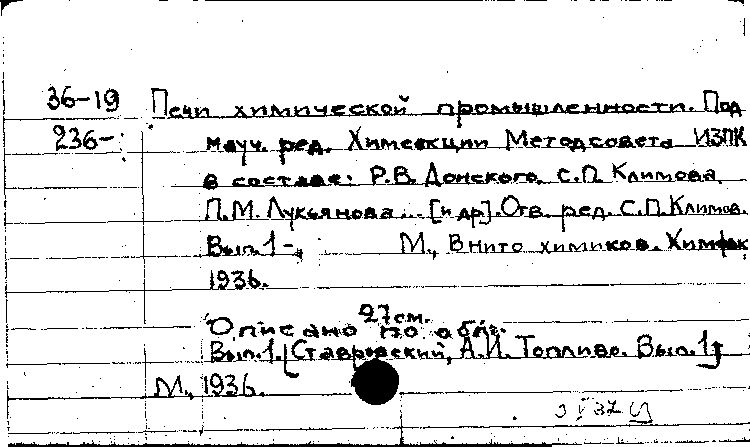 36-19 Печи химической промышленности. Под
236-: науч. ред. Химсекции Методсовета ИЗПК
в составе: Р.В. Донского, С.П. Климова,
П.М. Лукьянова... [и др]. Отв. ред. С.П. Климов.
Вып. 1-, М., ВНИТО химиков. Химфак
1936.
27 см.
Описано по обл.
Вып. 1. [Ставровский, А.И. Топливо. Вып. 1]
М., 1936.